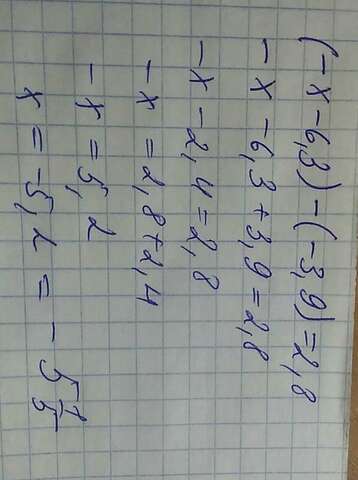 (-x-6,3)-(-3,9)=2,8
-x-6,3+3,9=2,8
-x-2,4=2,8
-x=2,8+2,4
-x=5,2
x=-5,2=-5 1/5